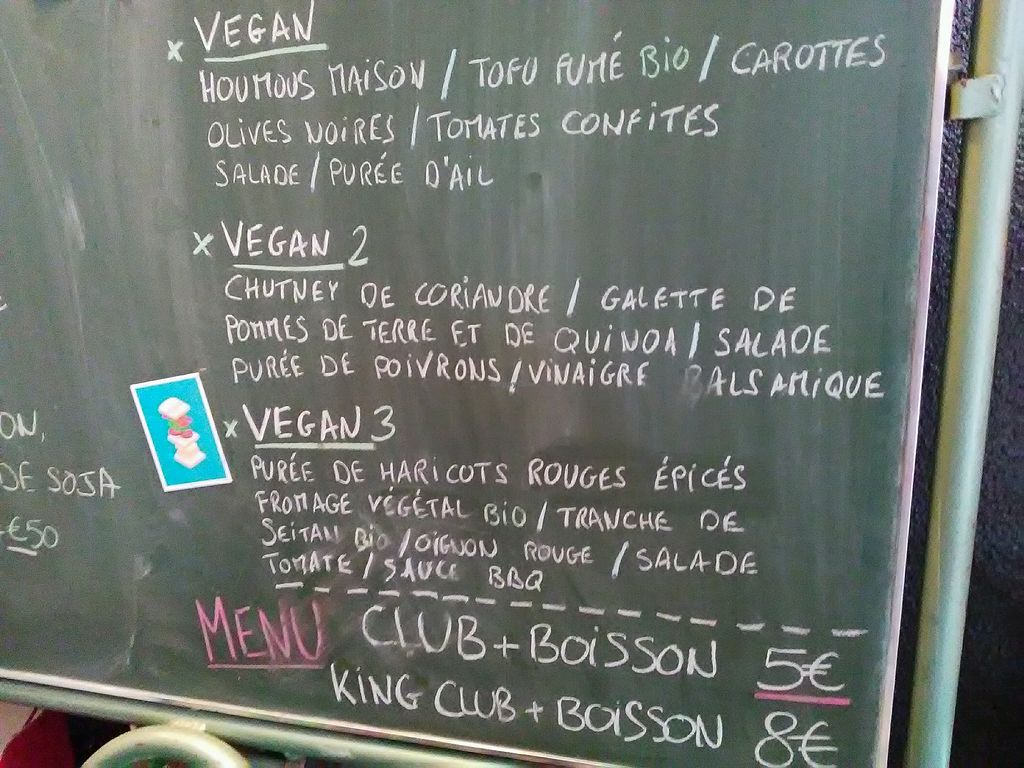 x VEGAN
HOUMOUS MAISON / TOFU FUMÉ BIO / CAROTTES
OLIVES NOIRES / TOMATES CONFITES
SALADE / PURÉE D'AIL
x VEGAN 2
CHUTNEY DE CORIANDRE / GALETTE DE
POMMES DE TERRE ET DE QUINOA / SALADE
PURÉE DE POIVRONS / VINAIGRE BALSAMIQUE
x VEGAN 3
PURÉE DE HARICOTS ROUGES ÉPICÉS
FROMAGE VÉGÉTAL BIO / TRANCHE DE
SEITAN BIO / OIGNON ROUGE / SALADE
TOMATE / SAUCE BBQ
ON,
DE SOJA
€50
MENU CLUB + BOISSON 5€
KING CLUB + BOISSON 8€